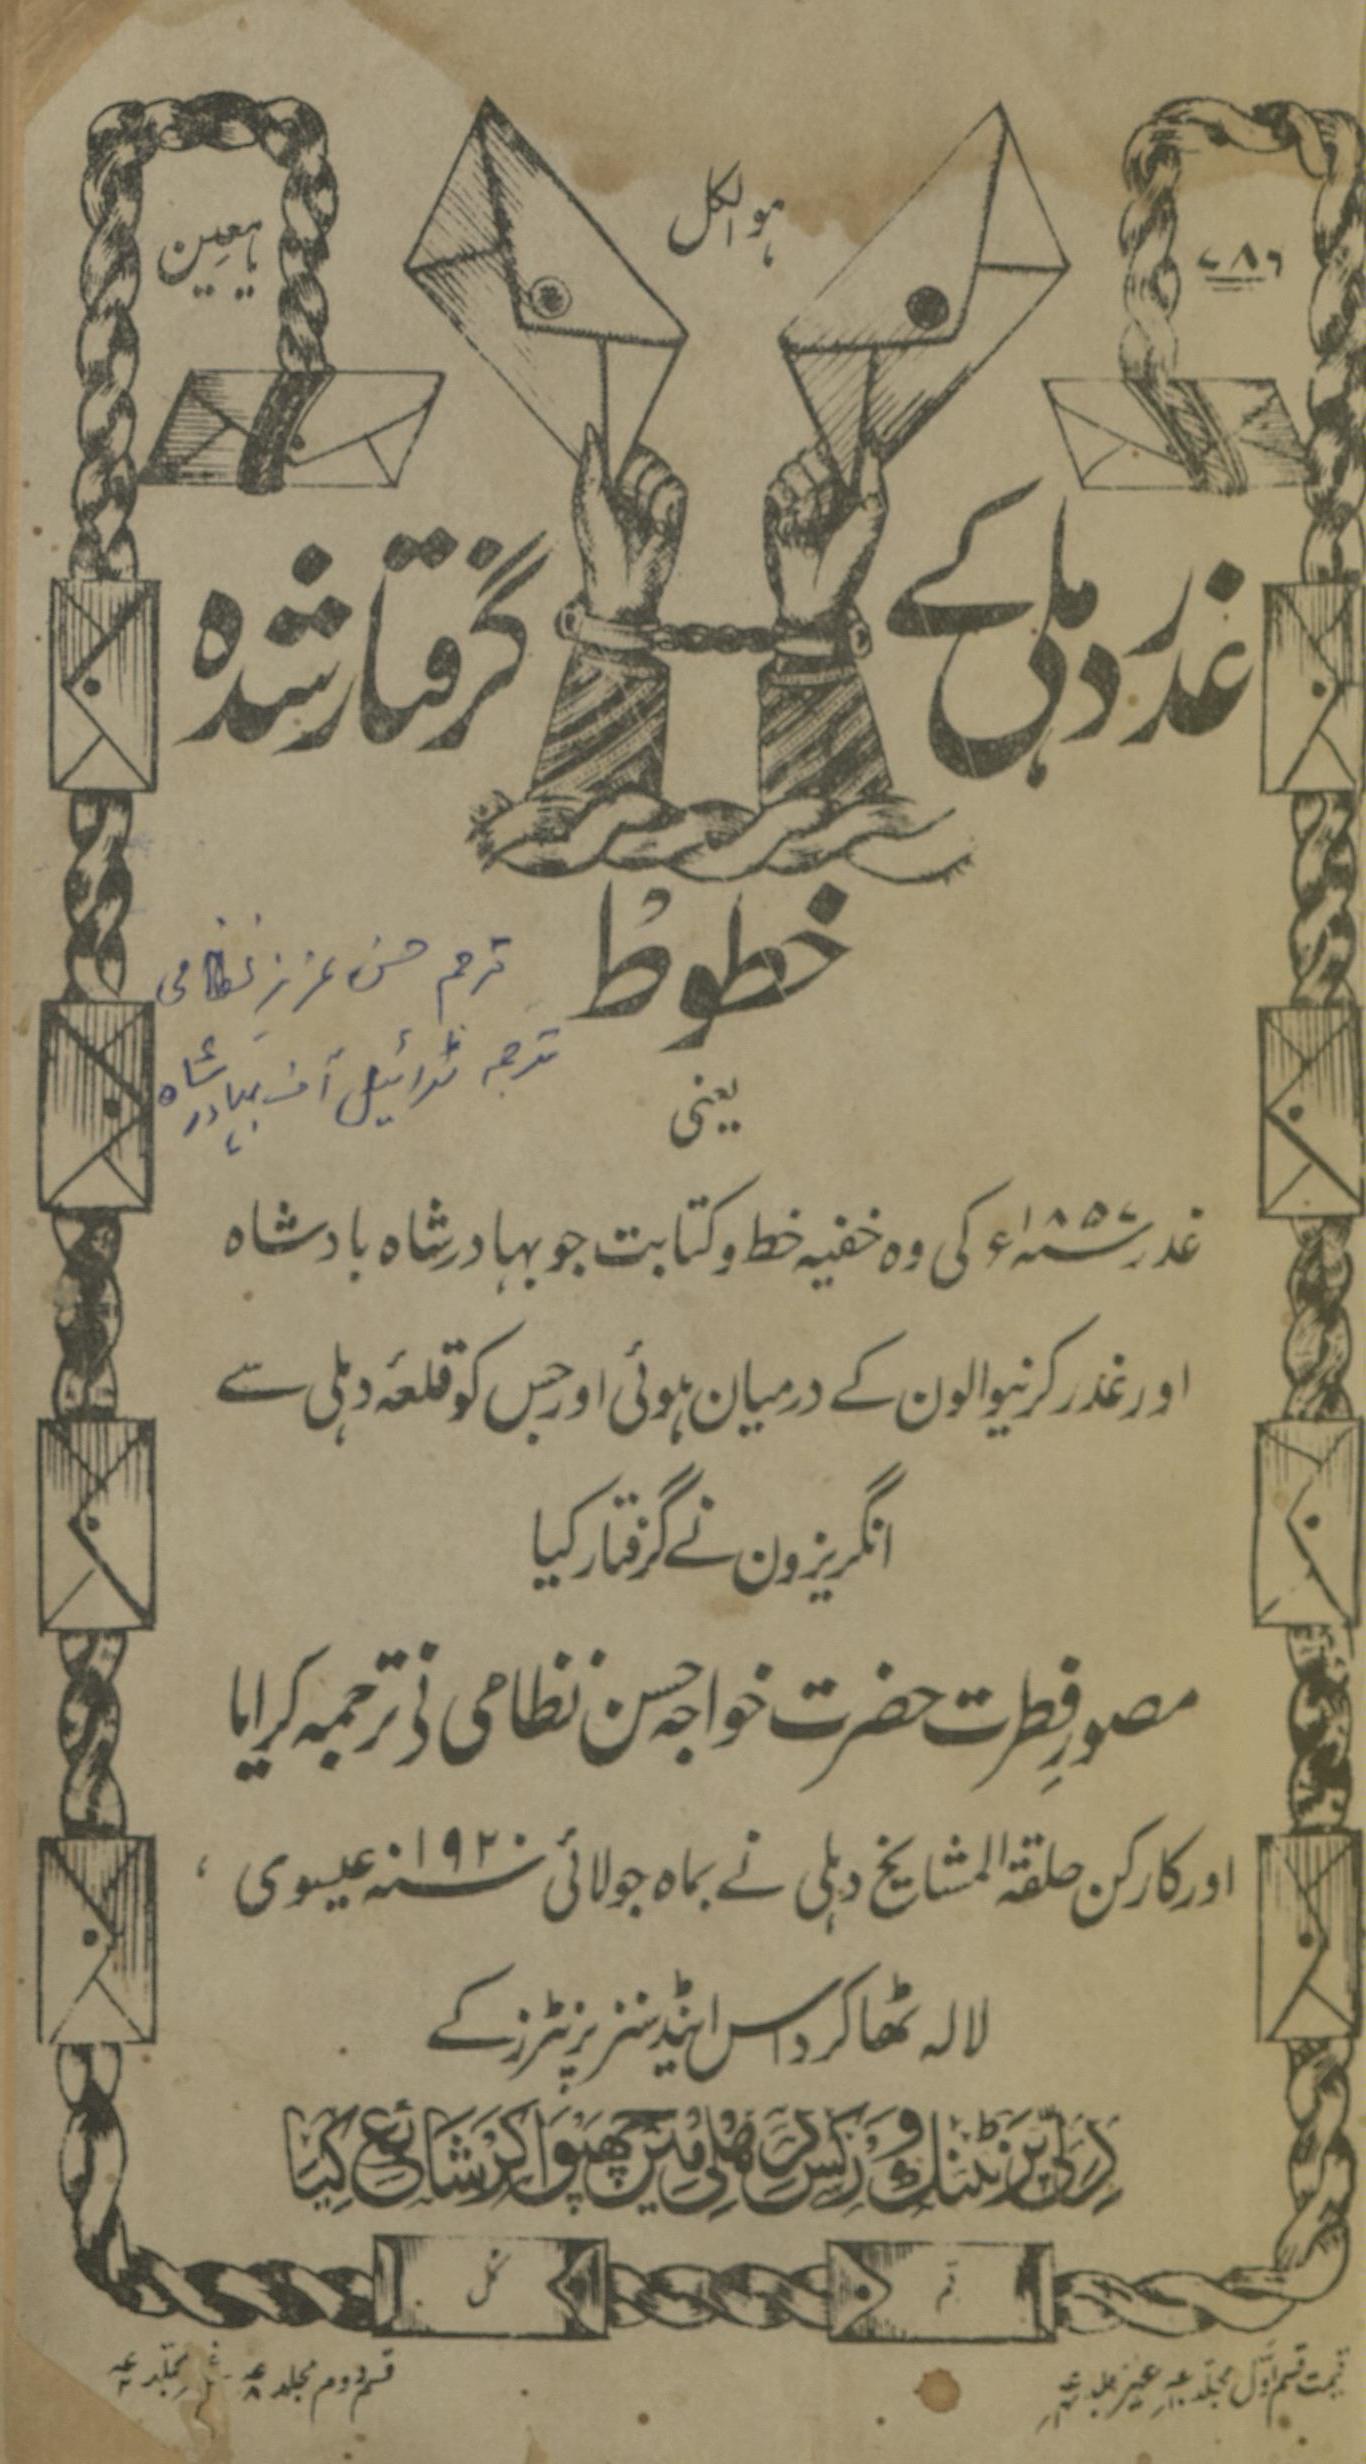 ۷۸۶
ھوالکل
یامعین
غدر دہلی کے
گرفتار شدہ
خطوط
ترجمہ حسن عزیز نظامی
ترجمہ ٹرائیل آف بہادر شاہ
یعنی
غدر ۱۸۵۷ء کی وہ خفیہ خط و کتابت جو بہادر شاہ بادشاہ
اور غدر کرنیوالون کے درمیان ہوئی اور جس کو قلعۂ دہلی سے
انگریزون نے گرفتار کیا
مصورِ فطرت حضرت خواجہ حسن نظامی نی ترجمہ کرایا
اور کارکن حلقۃ المشایخ دہلی نے بماہ جولائی ۱۹۲۰ سنہ عیسوی
لالہ ٹھاکر داس اینڈ سنز پرنٹرز کے
دلی پرنٹنگ ورکس دہلی میں چھپوا کر شائع کیا
قیمت قسم اوّل مجلد غیر مجلد
قسم دوم مجلد مجلد